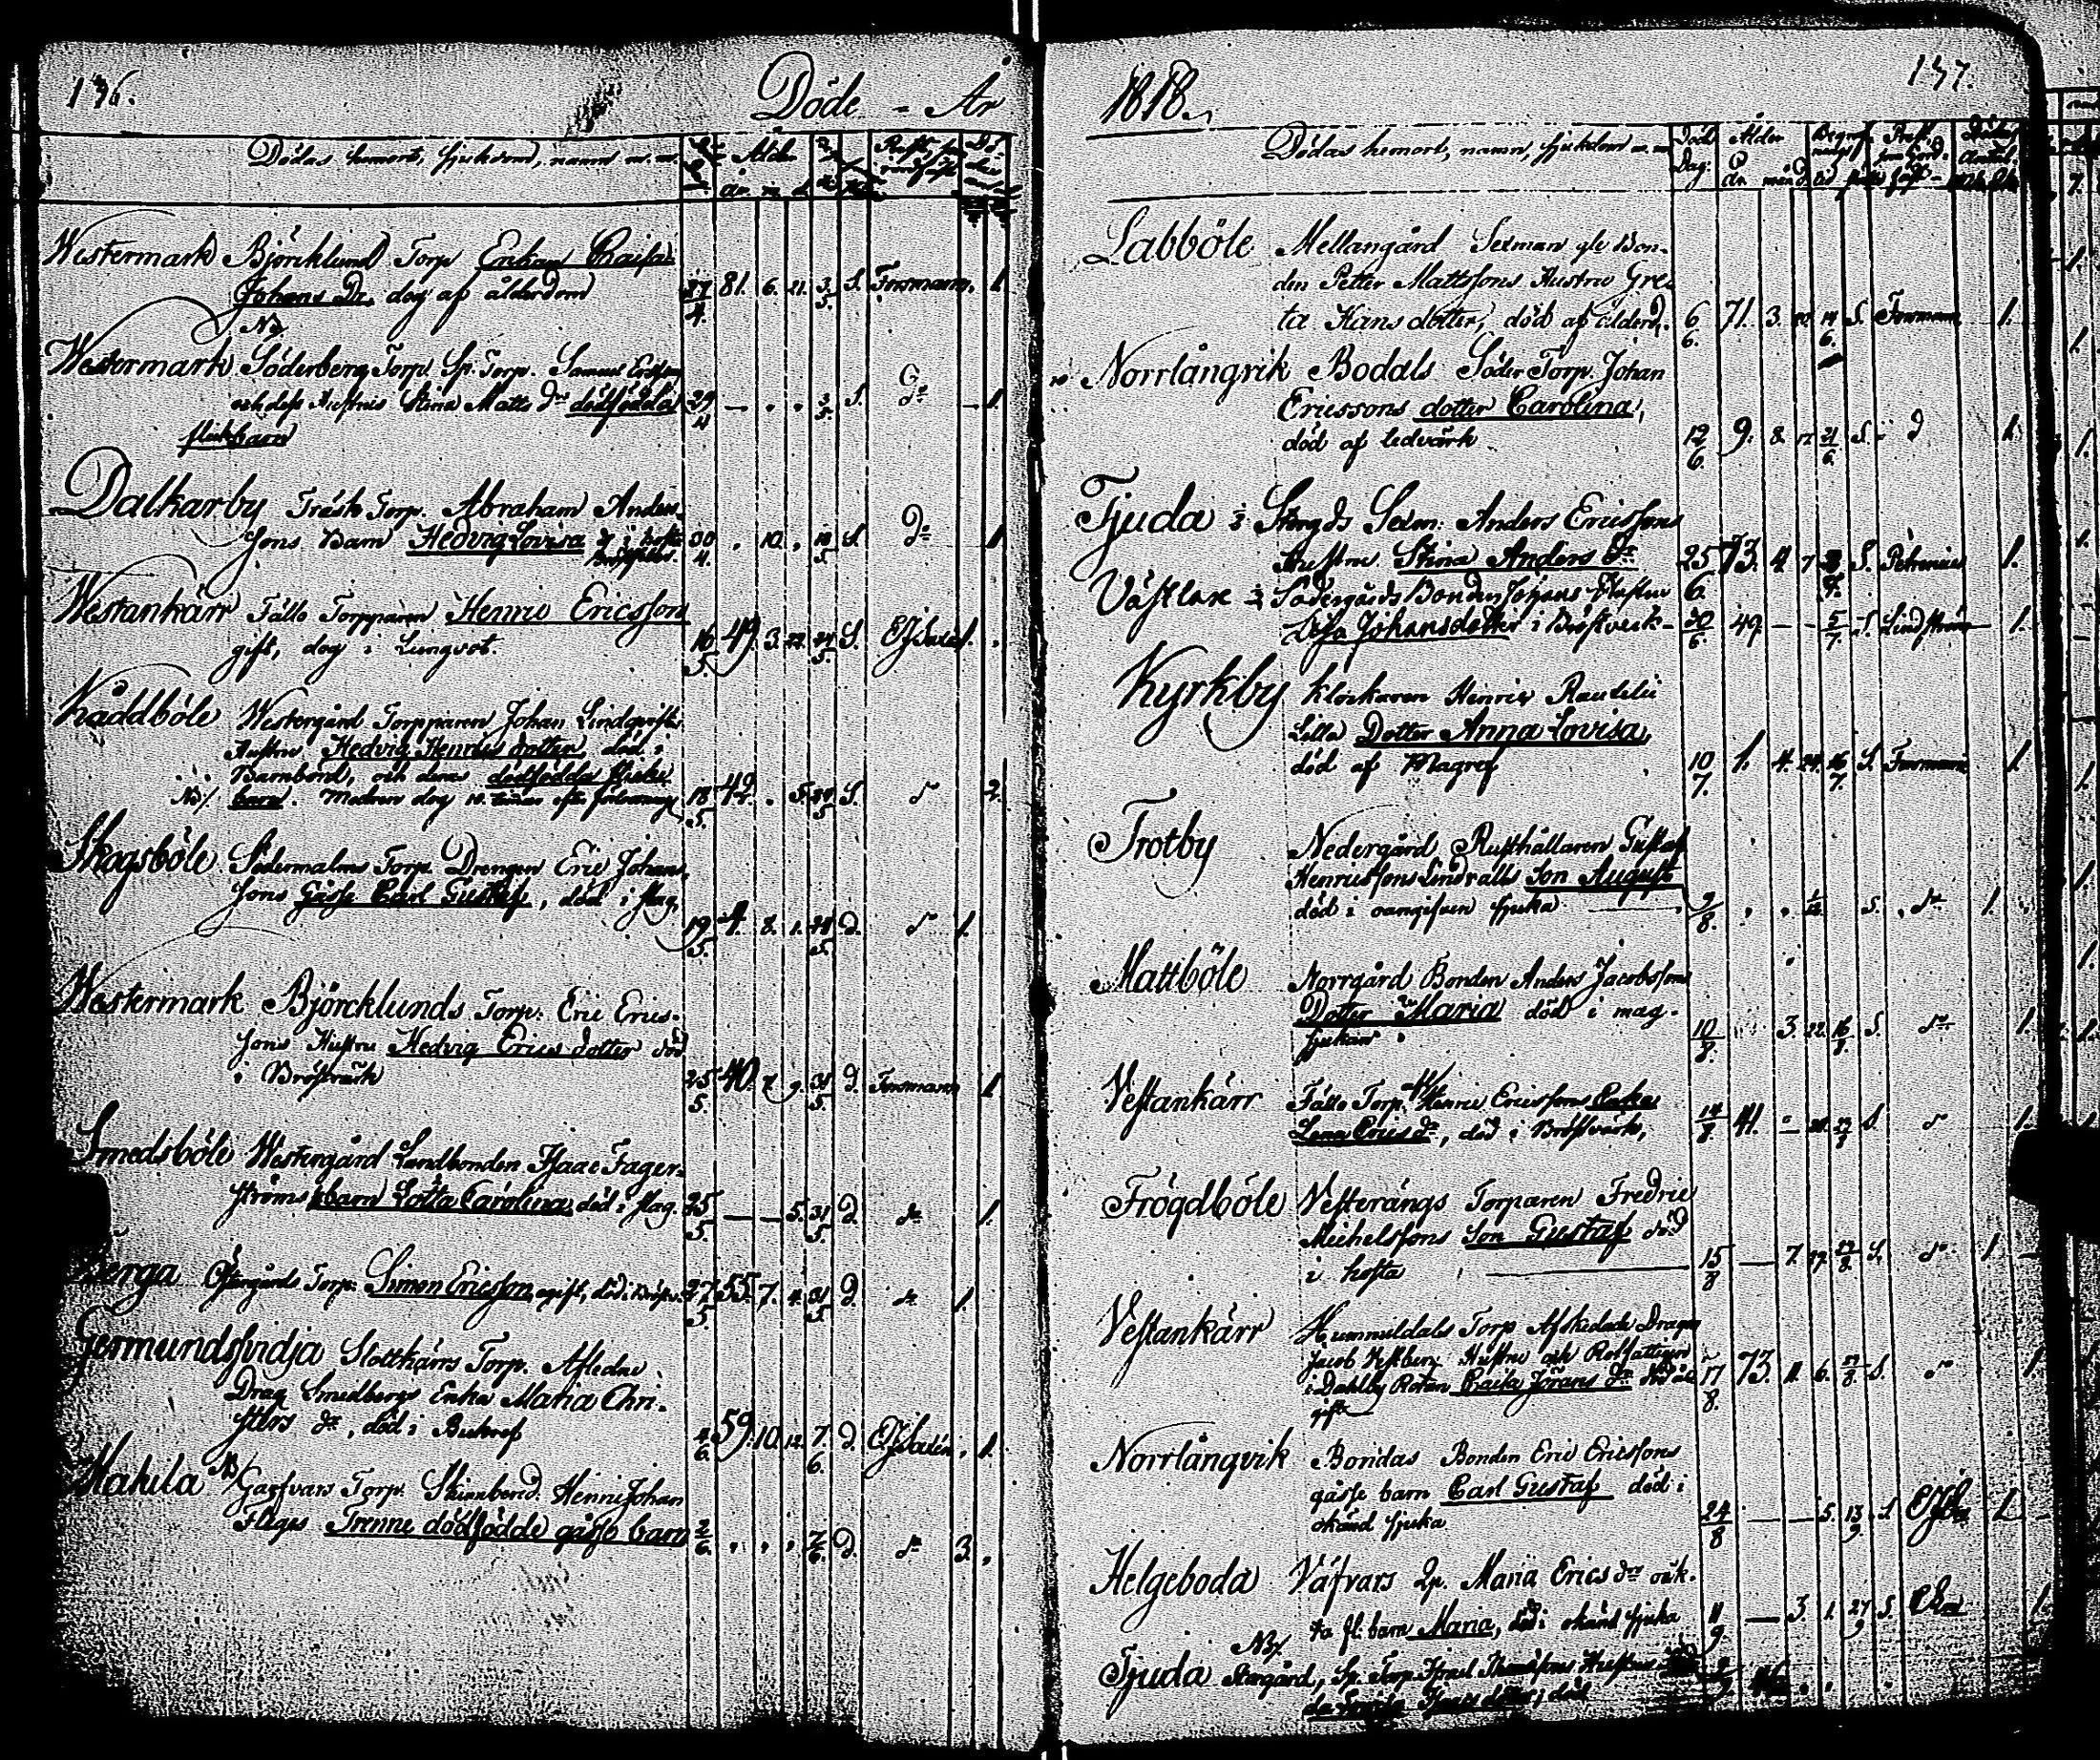 136.
Döde - År
Dödas hemort, sjukdom, namn m.m.
Ålder
år m d
Westermark Björcklund Torp Enkan Caisa
Johans Dr, dog af ålderdom 27/4 81. 6. 21. 3/5 S. Forsmann. 1.
NB
Westermark Söderberg Torp Sp. Torp. Samuel Ericsson
och dess Hustrus Stina Matts dr dödfödda 29/4 - . . 3/5 S. do - 1.
flickbarn
Dalkarby Träsk Torp. Abraham Anders
sons Barn Hedvig Lovisa d. i hosta 30/4 . 10. . 10/5 S do 1
Westankärr Fällo Torpparen Henric Ericsson
gift, dog i Lungsot. 16/5 49. 3. 22. 24/5 S. 1. .
Kåddböle Westergård Torpparen Johan Lindqvists
Hustru Hedvig Henrics dotter, död i
Barnbörd, och deras dödfödda flicke
NB/ barn. Modren dog 10 timar efter förlossning 18/5 42. . 5. 24/5 S. do 2.
Skogsböle Södermalms Torp. Drengen Eric Johans
sons Gåsse Carl Gustaf, död i slag, 19/5 4. 8. 1. 24/5 d. do 1.
Westermark Björcklunds Torp. Eric Erics-
sons Hustru Hedvig Erics dotter död
i Bröstvärk 25/5 40. 7. 9. 31/5 d. Forsmann 1
Smedsböle Westergård Landbonden Isaac Fager-
ströms barn Lotta Carolina, död i slag. 25/5 - - 5. 31/5 d. do 1.
Berga Östergårds Torp. Simon Ericsson ogift, död i Bröstv. 27/5 55. 7. 4. 31/5 d. do 1.
Germundsvidja Slottkärrs Torp. Afledne
Drag Smedbergs Enka Maria Chri-
sters dr, död i 4/6 59. 10. 12. 7/6 d. 1.
Makila NB/ Garfvars Torp. Henric Johan
Fliges Trenne dödfödde gåsse barn 2/6 . . . 7/6 d. do 3. .
1818.
137.
Dödas hemort, namn, sjukdom m.m.
Döds Dag. Ålder År mån d
Labböle Mellangård Sexman gle Bon-
den Petter Mattssons Hustru Gre-
ta Hans dotter, död af ålderd. 6/6. 71. 3. 14/6. S. Forsmann 1.
Norrlångvik Bodals Söder Torp. Johan
Ericssons dotter Carolina,
död af ledvärk 12/6. 9. 8. 21/6. S. d 1.
Tjuda Storgds Sexm: Anders Ericssons
Hustru Stina Anders dr 25/6. 73. 4. 7 S. Petrenius 1.
Västlax Södergårds Bonden Johans Hustru
Lisa Johansdotter i Bröstverk- 30/6. 49. - - 5/7. S. Lindström 1.
Kyrkby Klockaren Henric Raudelii
Lilla Dotter Anna Lovisa,
död af Magref 10/7. 1. 4. 24. 16/7. S. Forsmann 1.
Trotby Nedergård Rusthållaren Gustaf
Henricssons Lindvalls Son August
död i oangifven sjuka 9/8. . . 1/12 S. do 1.
Mattböle Norrgård Bonden Anders Jacobssons
Dotter Maria död i mag-
sjukan. 10/8. 3. 22. 16/8. S. do 1.
Vestankärr Fällo Torp. Henric Ericssons Enka
Lena Erics dr, död i Bröstvärk, 14/8. 41. - 24. S do 1.
Frögdböle Vesterängs Torparen Fredric
Michelssons Son Gustaf död
i hosta 15/8 - 7. 27. S. do 1. -
Vestankärr Hummeldals Torp Afskedade Dragon
Jacob Hustru och Rotfattigen
i Dahlby Rotan Caisa Jörans dr död ål
gift 17/8. 73. 11. 6. S. do 1.
Norrlångvik Bondas Bonden Eric Ericssons
gåsse barn Carl Gustaf död i
okänd sjuka 24/8 - - 5. 13/9 S 1.
Helgeboda Väfvars Qp. Maria Erics dr oäk-
ta fl: barn Maria, död i okänd sjuka 11/9. - 3. 1. 27/9 S. 1.
NB/
Tjuda Storgård, Sp. Torp. Hustru
död